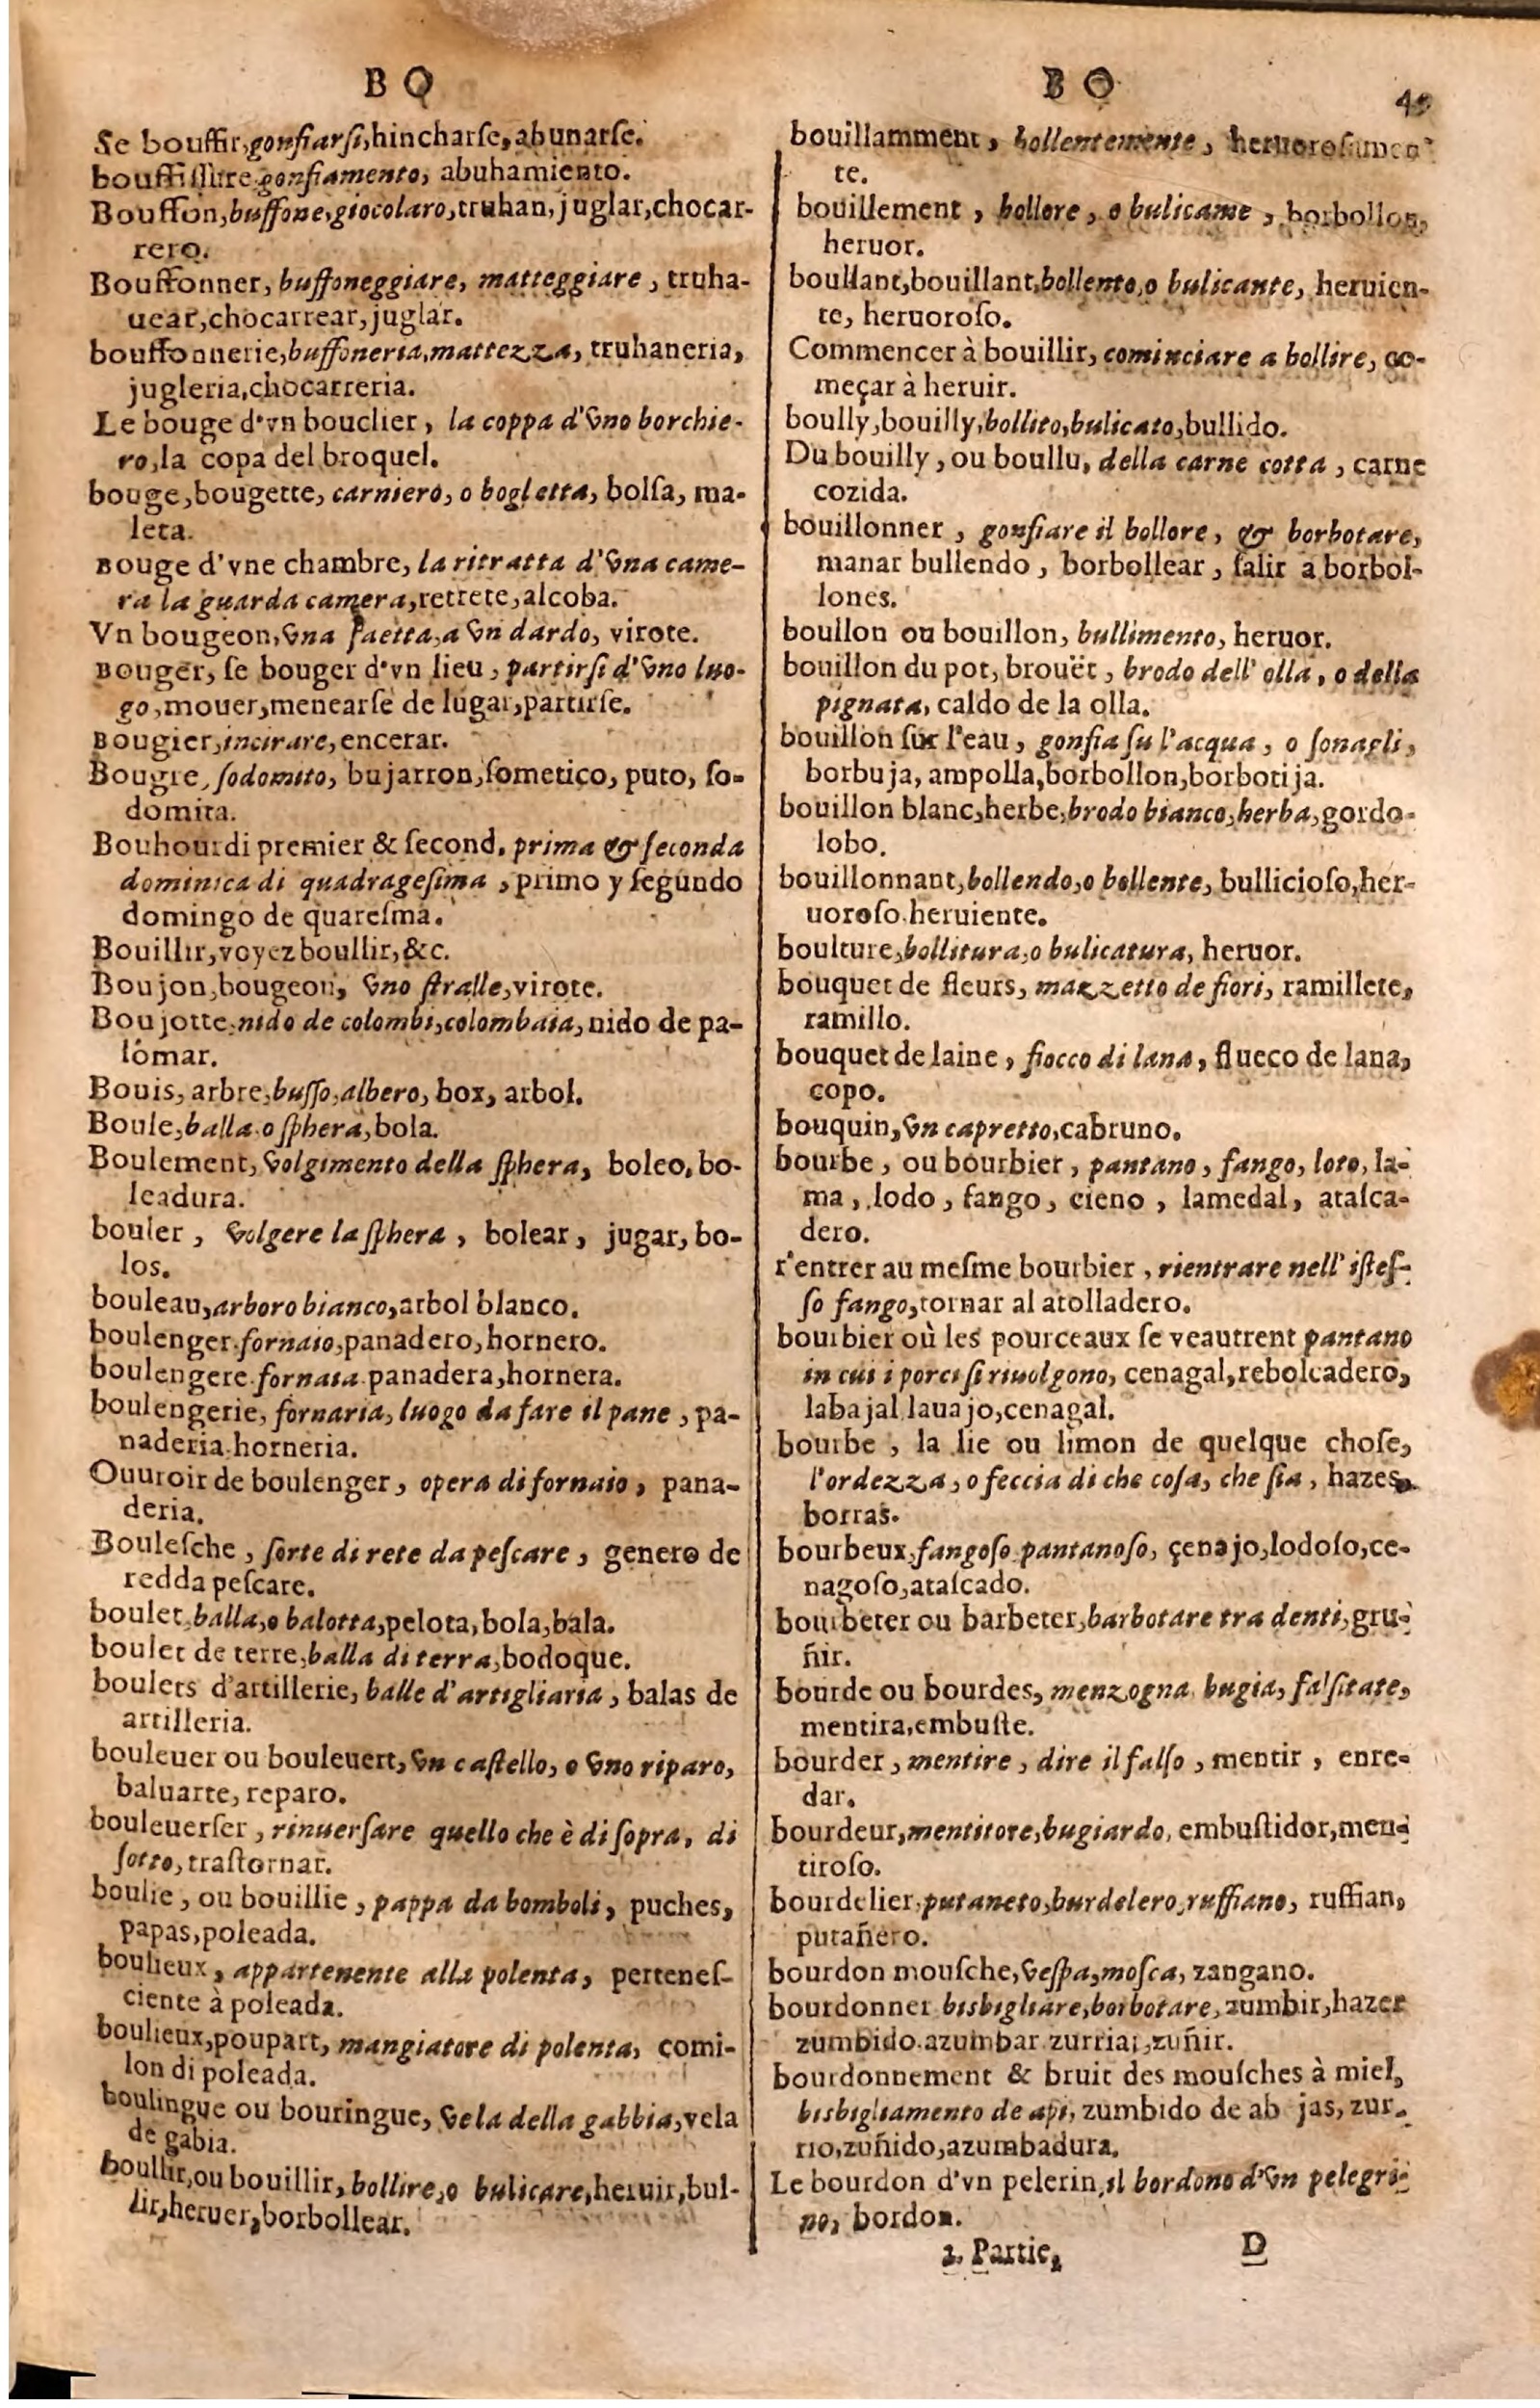 B O
Se bouffir, gonfiarsi, hincharse, abunarse.
bouffissure, gonfiamento, abuhamiento.
Bouffon, buffone, giocolaro, truhan, juglar, chocar-
rero.
Bouffonner, buffoneggiare, matteggiare, truha-
uear, chocarrear, juglar.
bouffonnerie, buffoneria, mattezza, truhaneria,
jugleria, chocarreria.
Le bouge d'vn bouclier, la coppa d'vno borchie-
ro, la copa del broquel.
bouge, bougette, carniero, o bogletta, bolsa, ma-
leta.
Bouge d'vne chambre, la ritratta d'vna came-
ra la guarda camera, retrete, alcoba.
Vn bougeon, vna saetta, a vn dardo, virote.
Bouger, se bouger d'vn lieu, partirsi d'vno luo-
go, mouer, menearse de lugar, partirse.
Bougier, incirare, encerar.
Bougre, sodomito, bujarron, sometico, puto, so-
domita.
Bouhourdi premier & second, prima & seconda
dominica di quadragesima, primo y segundo
domingo de quaresma.
Bouillir, voyez boullir, &c.
Boujon, bougeon, vno stralle, virote.
Boujotte, nido de colombi, colombaia, nido de pa-
lomar.
Bouis, arbre, busso, albero, box, arbol.
Boule, balla o sphera, bola.
Boulement, volgimento della sphera, boleo, bo-
leadura.
bouler, volgere la sphera, bolear, jugar, bo-
los.
bouleau, arboro bianco, arbol blanco.
boulenger, fornaio, panadero, hornero.
boulengere, fornaia panadera, hornera.
boulengerie, fornaria, luogo da fare il pane, pa-
naderia horneria.
Ouuroir de boulenger, opera di fornaio, pana-
deria.
Boulesche, sorte di rete da pescare, genero de
redda pescare.
boulet, balla, o balotta, pelota, bola, bala.
boulet de terre, balla di terra, bodoque.
boulets d'artillerie, balle d'artigliaria, balas de
artilleria.
bouleuer ou bouleuert, vn castello, o vno riparo,
baluarte, reparo.
bouleuerser, rinuersare quello che è di sopra, di
sotto, trastornar.
boulie, ou bouillie, pappa da bomboli, puches,
papas, poleada.
boulieux, appartenente alla polenta, pertenes-
ciente à poleada.
boulieux, poupart, mangiatore di polenta, comi-
lon di poleada.
boulingue ou bouringue, vela della gabbia, vela
de gabia.
boullir, ou bouillir, bollire, o bulicare, heruir, bul-
lir, heruer, borbollear.
B O
bouillamment, bollentemente, heruorosamen-
te.
bouillement, bollore, o bulicame, borbollon,
heruor.
boullant, bouillant, bollento, o bulicante, heruien-
te, heruoroso.
Commencer à bouillir, cominciare a bollire, co-
meçar à heruir.
boully, bouilly, bollito, bulicato, bullido.
Du bouilly, ou boullu, della carne cotta, carne
cozida.
bouillonner, gonfiare il bollore, & borbotare,
manar bullendo, borbollear, salir a borbol-
lones.
boullon ou bouillon, bullimento, heruor.
bouillon du pot, brouët, brodo dell' olla, o della
pignata, caldo de la olla.
bouillon sur l'eau, gonfia su l'acqua, o sonagli,
borbuja, ampolla, borbollon, borbotija.
bouillon blanc, herbe, brodo bianco, herba, gordo-
lobo.
bouillonnant, bollendo, o bollente, bullicioso, her-
uoroso heruiente.
boulture, bollitura, o bulicatura, heruor.
bouquet de fleurs, mazzetto de fiori, ramillete,
ramillo.
bouquet de laine, fiocco di lana, flueco de lana,
copo.
bouquin, vn capretto, cabruno.
bourbe, ou bourbier, pantano, fango, loto, la-
ma, lodo, fango, cieno, lamedal, atasca-
dero.
r'entrer au mesme bourbier, rientrare nell' istes-
so fango, tornar al atolladero.
bourbier où les pourceaux se veautrent pantano
in cui i porci si riuolgono, cenagal, rebolcadero,
labajal lauajo, cenagal.
bourbe, la lie ou limon de quelque chose,
l'ordezza, o feccia di che cosa, che sia, hazes,
borras.
bourbeux, fangoso pantanoso, çenajo, lodoso, ce-
nagoso, atascado.
bourbeter ou barbeter, barbotare tra denti, gru-
ñir.
bourde ou bourdes, menzogna bugia, falsitate,
mentira, embuste.
bourder, mentire, dire il falso, mentir, enre-
dar.
bourdeur, mentitore, bugiardo, embustidor, men-
tiroso.
bourdelier, putaneto, burdelero, ruffiano, ruffian,
putañero.
bourdon mousche, vespa, mosca, zangano.
bourdonner bisbigliare, borbotare, zumbir, hazer
zumbido azumbar zurriar, zuñir.
bourdonnement & bruit des mousches à miel,
bisbigliamento de api, zumbido de ab jas, zur-
rio, zuñido, azumbadura.
Le bourdon d'vn pelerin, il bordono d'vn pelegri-
no, bordon.
1. Partie, D